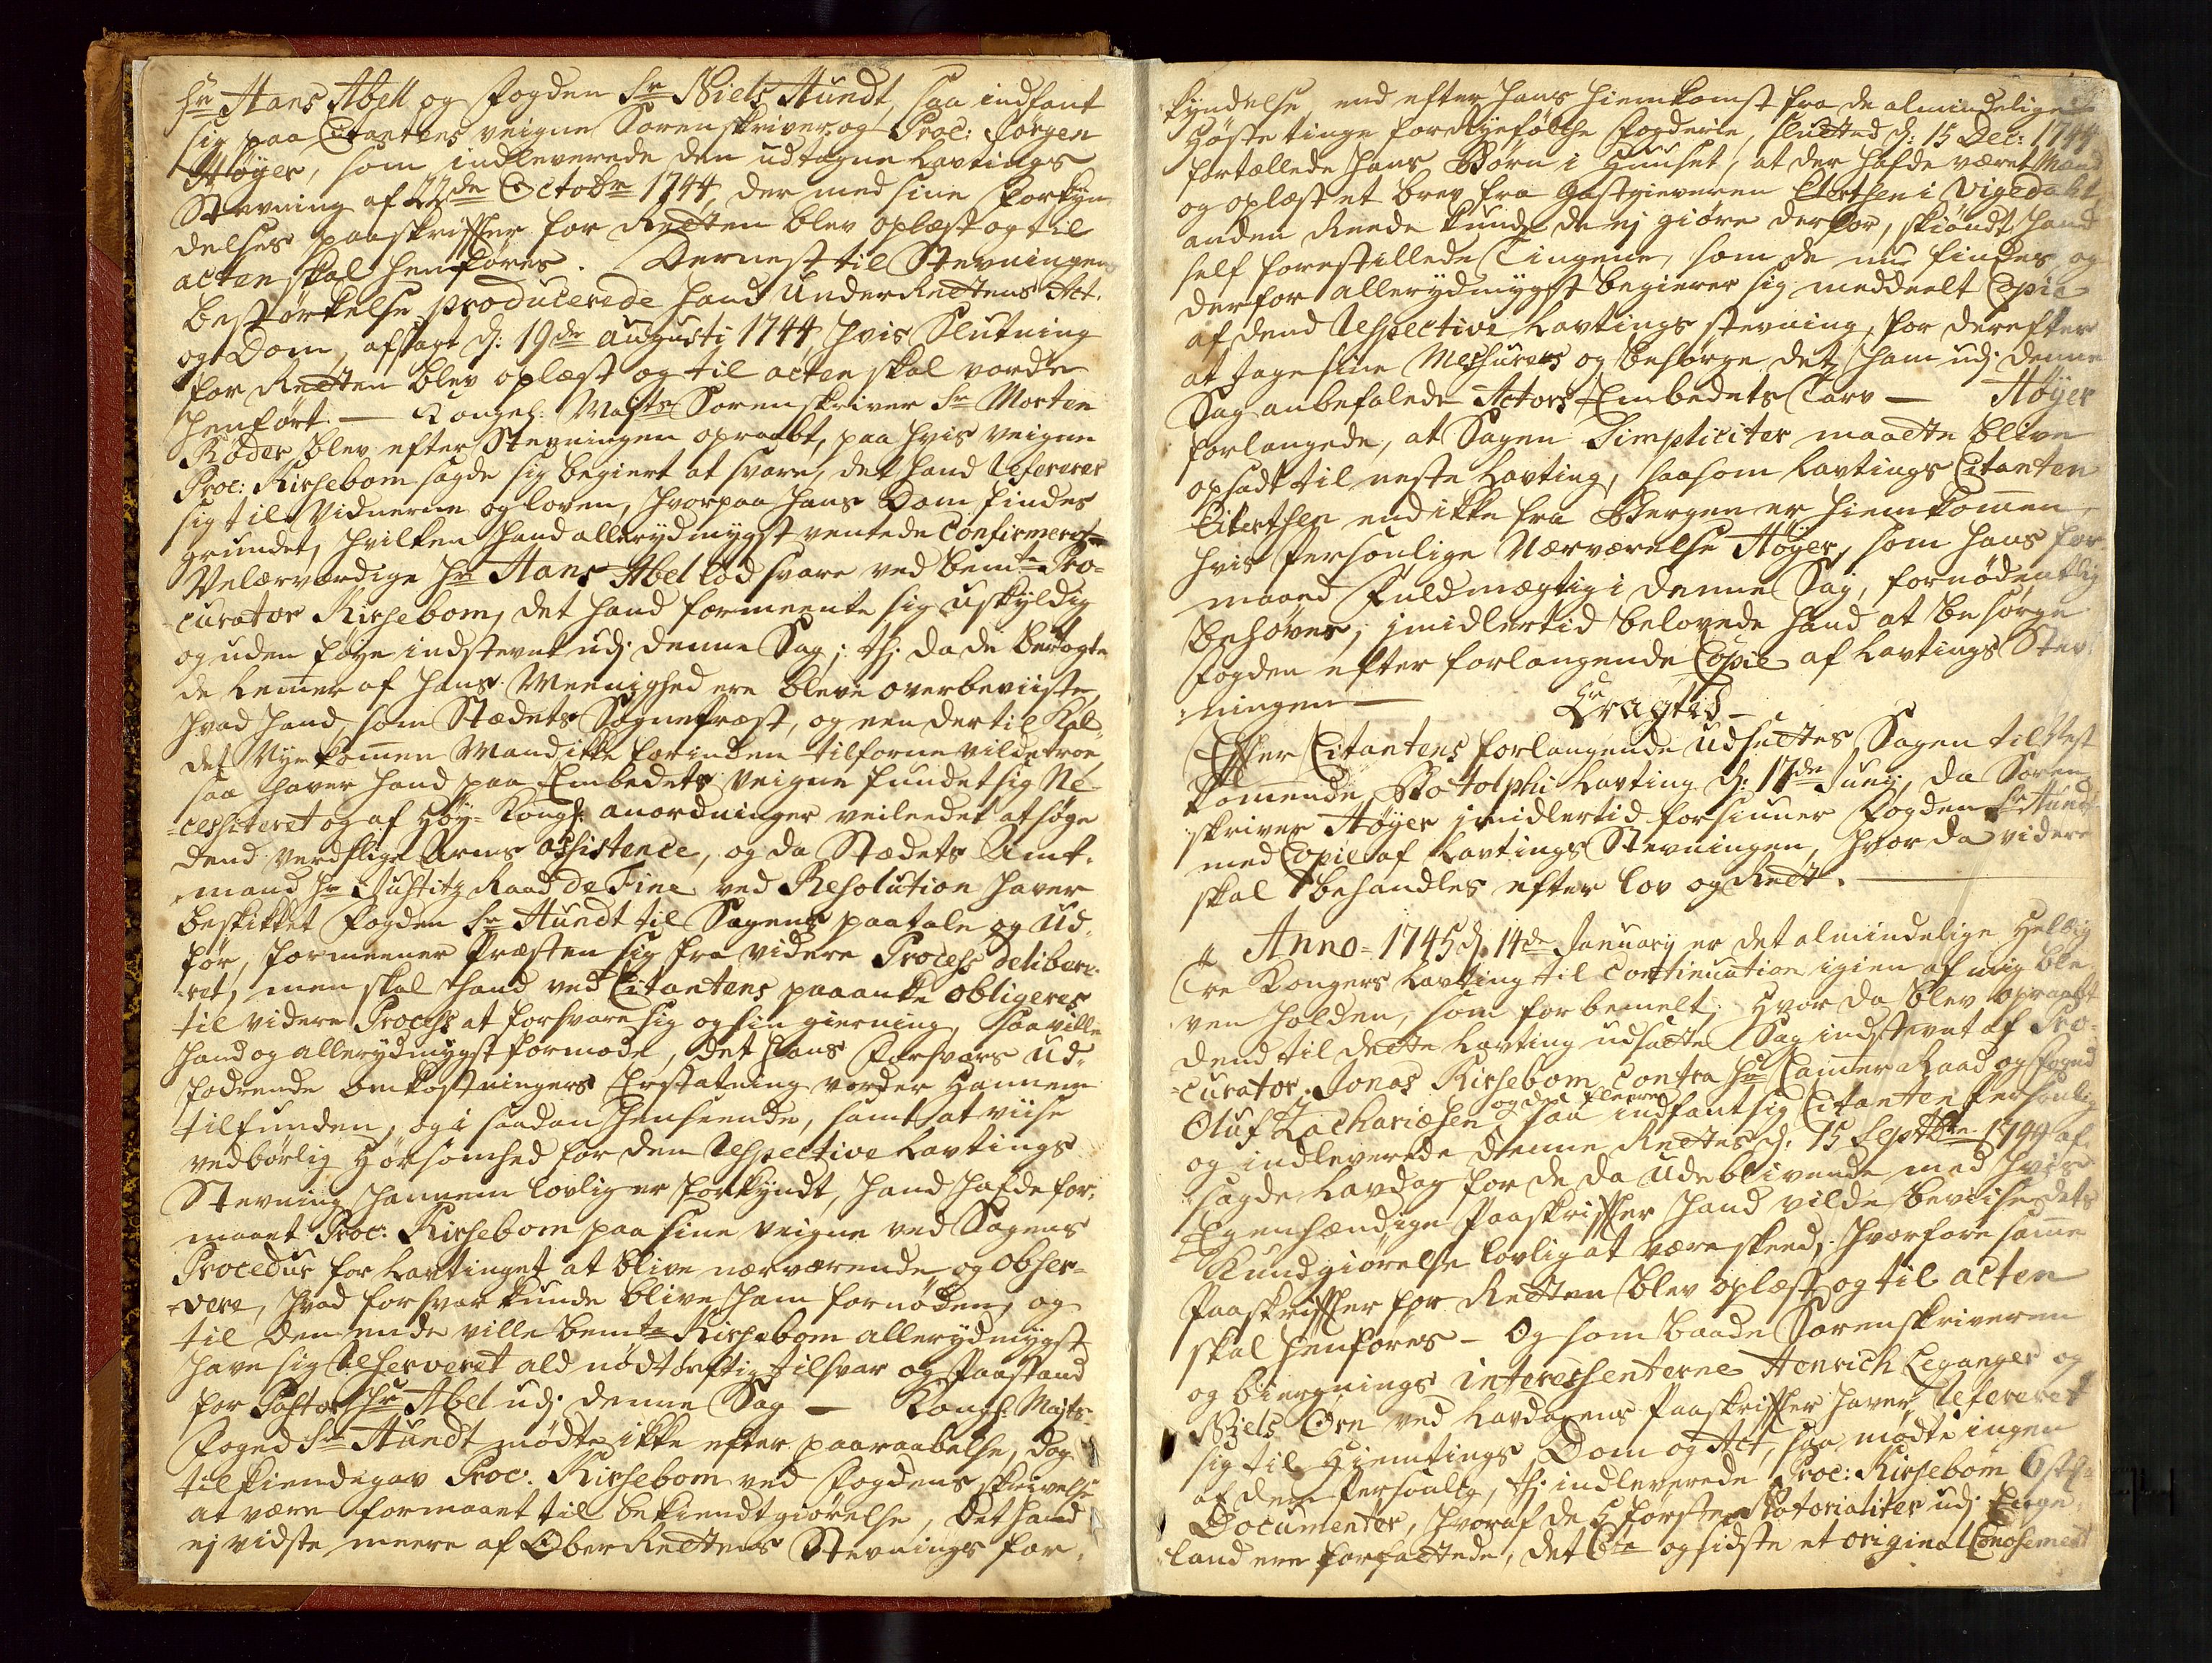 Hr Hans Abell og Fogden Sr Niels Hundt, saa indfant
sig paa Citantens veigne Sorenskriver og Proc: Jørgen
Høyer, som indleverede den udtagne Lavtings
Stevning af 22de Octobr 1744, der med sine Forkyn
delses paaskriffter for Retten blev oplæst og til
acten skal henføres. Dernest til Stevningens
bestørkelse producerede hand UnderRettens Act
og Dom, afsagt d: 19de Augusti 1744, hvis Slutning
for Retten blev oplæst og til acten skal vorde
henført. — Kongel: Maists Sorenskriver Sr Morten
Røder blev efter Stevningen opraabt, paa hvis veigne
Proc: Kirsebom sagde sig begiert at svare, det hand refererer
sig til Vidnerne og loven, hvorpaa hans Dom findes
grundet, hvilken hand allerydmygst ventede Confirmeret
Velærværdige Hr Hans Abel lod svare ved bemte Pro=
curator Kirsebom, det hand formeente sig uskyldig
og uden føye indstevnt udj denne Sag; thj da de berøgte
de Lemer af hans Meenighed ere bleve overbeviiste,
hvad hand som Stædets Sognepræst, og een dertil Kal=
det Nyekommen Mand ikke forinden tilforne vilde troe,
saa haver hand paa Embedets veigne fundet sig Ne=
=cessiteret og af høy=Kongl: anordninger veileedet at søge
dend verdslige Arms assistence, og da Stædets Amt=
mand Hr Justitz Raad de Fine ved Resolution haver
beskikket Fogden Sr Hundt til Sagens paatale og Ud=
før, formeener Præsten sig fra videre Process delibere=
ret, men skal hand ved Citantens paaanke obligeres
til videre Process at forsvare sig og sin gierning, saa ville
hand og allerydmygst formode, det hans Forsvars Ud=
fodrende omkostningers Erstatning vorder Hannem
tilfunden, og i saadan henseende, samt at viise
vedbørlig hørsomhed for den respective Lavtings
Stevning hannem lovlig er forkyndt, hand hafde for=
maaet Proc: Kirsebom paa sine veigne ved Sagens
Procedur for Lavtinget at blive nærværende og obser=
=vere, hvad forsvar kunde blive ham fornøden, og
til den ende ville bemte Kirsebom allerydmygst
have sig reserveret ald nødtørftig tilsvar og Paastand
for Pastor Hr Abel udj denne Sag — Kongl. Maists
Foged Sr Hundt mødte ikke efter paaraabelse, dog
tilkiendegav Proc. Kirsebom ved Fogdens skrivelse
at være formaaet til bekiendtgiørelse, Det hand
ej vidste meere af OberRettens Stevnings for=
kyndelse, end efter hans hiemkomst fra de almindelige
Høste tinge for Ryefølche Fogderie, sluttad d: 15 Dec: 1744
fortællede hans Børn i Huuset, at der hafde været Mænd
og oplæst et brev fra Gæstgieveren Eiertsen i Vigedahl,
anden Reede kunde de ej giøre derfor, skiøndt hand
self forestillede Tingene, som de nu findes og
derfor allerydmygst begierer sig meddeelt Copie
af dend respective Lavtings stevning, for derefter
at tage sine Messures og besørge det ham udj denne
Sag anbefalede Actors Embedets Tarv — Høyer
forlangede, at Sagen Simpliciter maatte blive
opsadt til neste Lavting, saasom Lavtings Citanten
Eilertsen end ikke fra Bergen er hiemkommen,
hvis Personlige Nærværelse Høyer, som hans for=
maaed Fuldmægtig i denne Sag, fornødentlig
behøver; imidlertid belovede hand at besørge
Fogden efter forlangende Copie af Lavtings Stev
ningen —
Eragtet —
Efter Citantens forlangende Udsættes Sagen til Nest
komende Botolphi Lavting d: 17de Junij, da Soren
skriver Høyer imidlertid forsiuner Fogden Sr Hundt
med Copie af Lavtings Stevningen, hvor da videre
skal behandles efter lov og Ret. —
Anno=1745 d. 14de January er det almindelige Hellig
Tre Kongers Lavting til Continuation igien af mig ble
ven holden, som forbemelt: Hvor da blev opraabt
dend til dette Lavting udsatte Sag indstevnt af Pro=
=curator Jonas Kirsebom contra Hr Camer Raad og Foged
Oluf Zachariæsen og deel fleere, saa indfant sig Citanten Personlig
og indleverede denne Rettes d: 15 Septbr 1744 af=
sagde Lavdag for de da Udeblivende med hvis
Egenhændige Paaskriffter hand vilde beviise dets
Kundgiørelse lovlig at være skeed, hvorfore samme
Paaskriffter for Retten blev oplæst og til acten
skal henføres — Og som baade Sorenskriveren
og biergnings interessenterne Henrich Leganger og
Niels Ørn ved Lavdagens Paaskriffter haver refereret
sig til Hiemtings Dom og Act, saa mødte ingen
af dem Personlig, thj indleverede Proc: Kirsebom 6 st:
Documenter, hvoraf de 5 første Notorialiter udj Enge=
land ere forfattede, det 6te og sidste et original Conosement